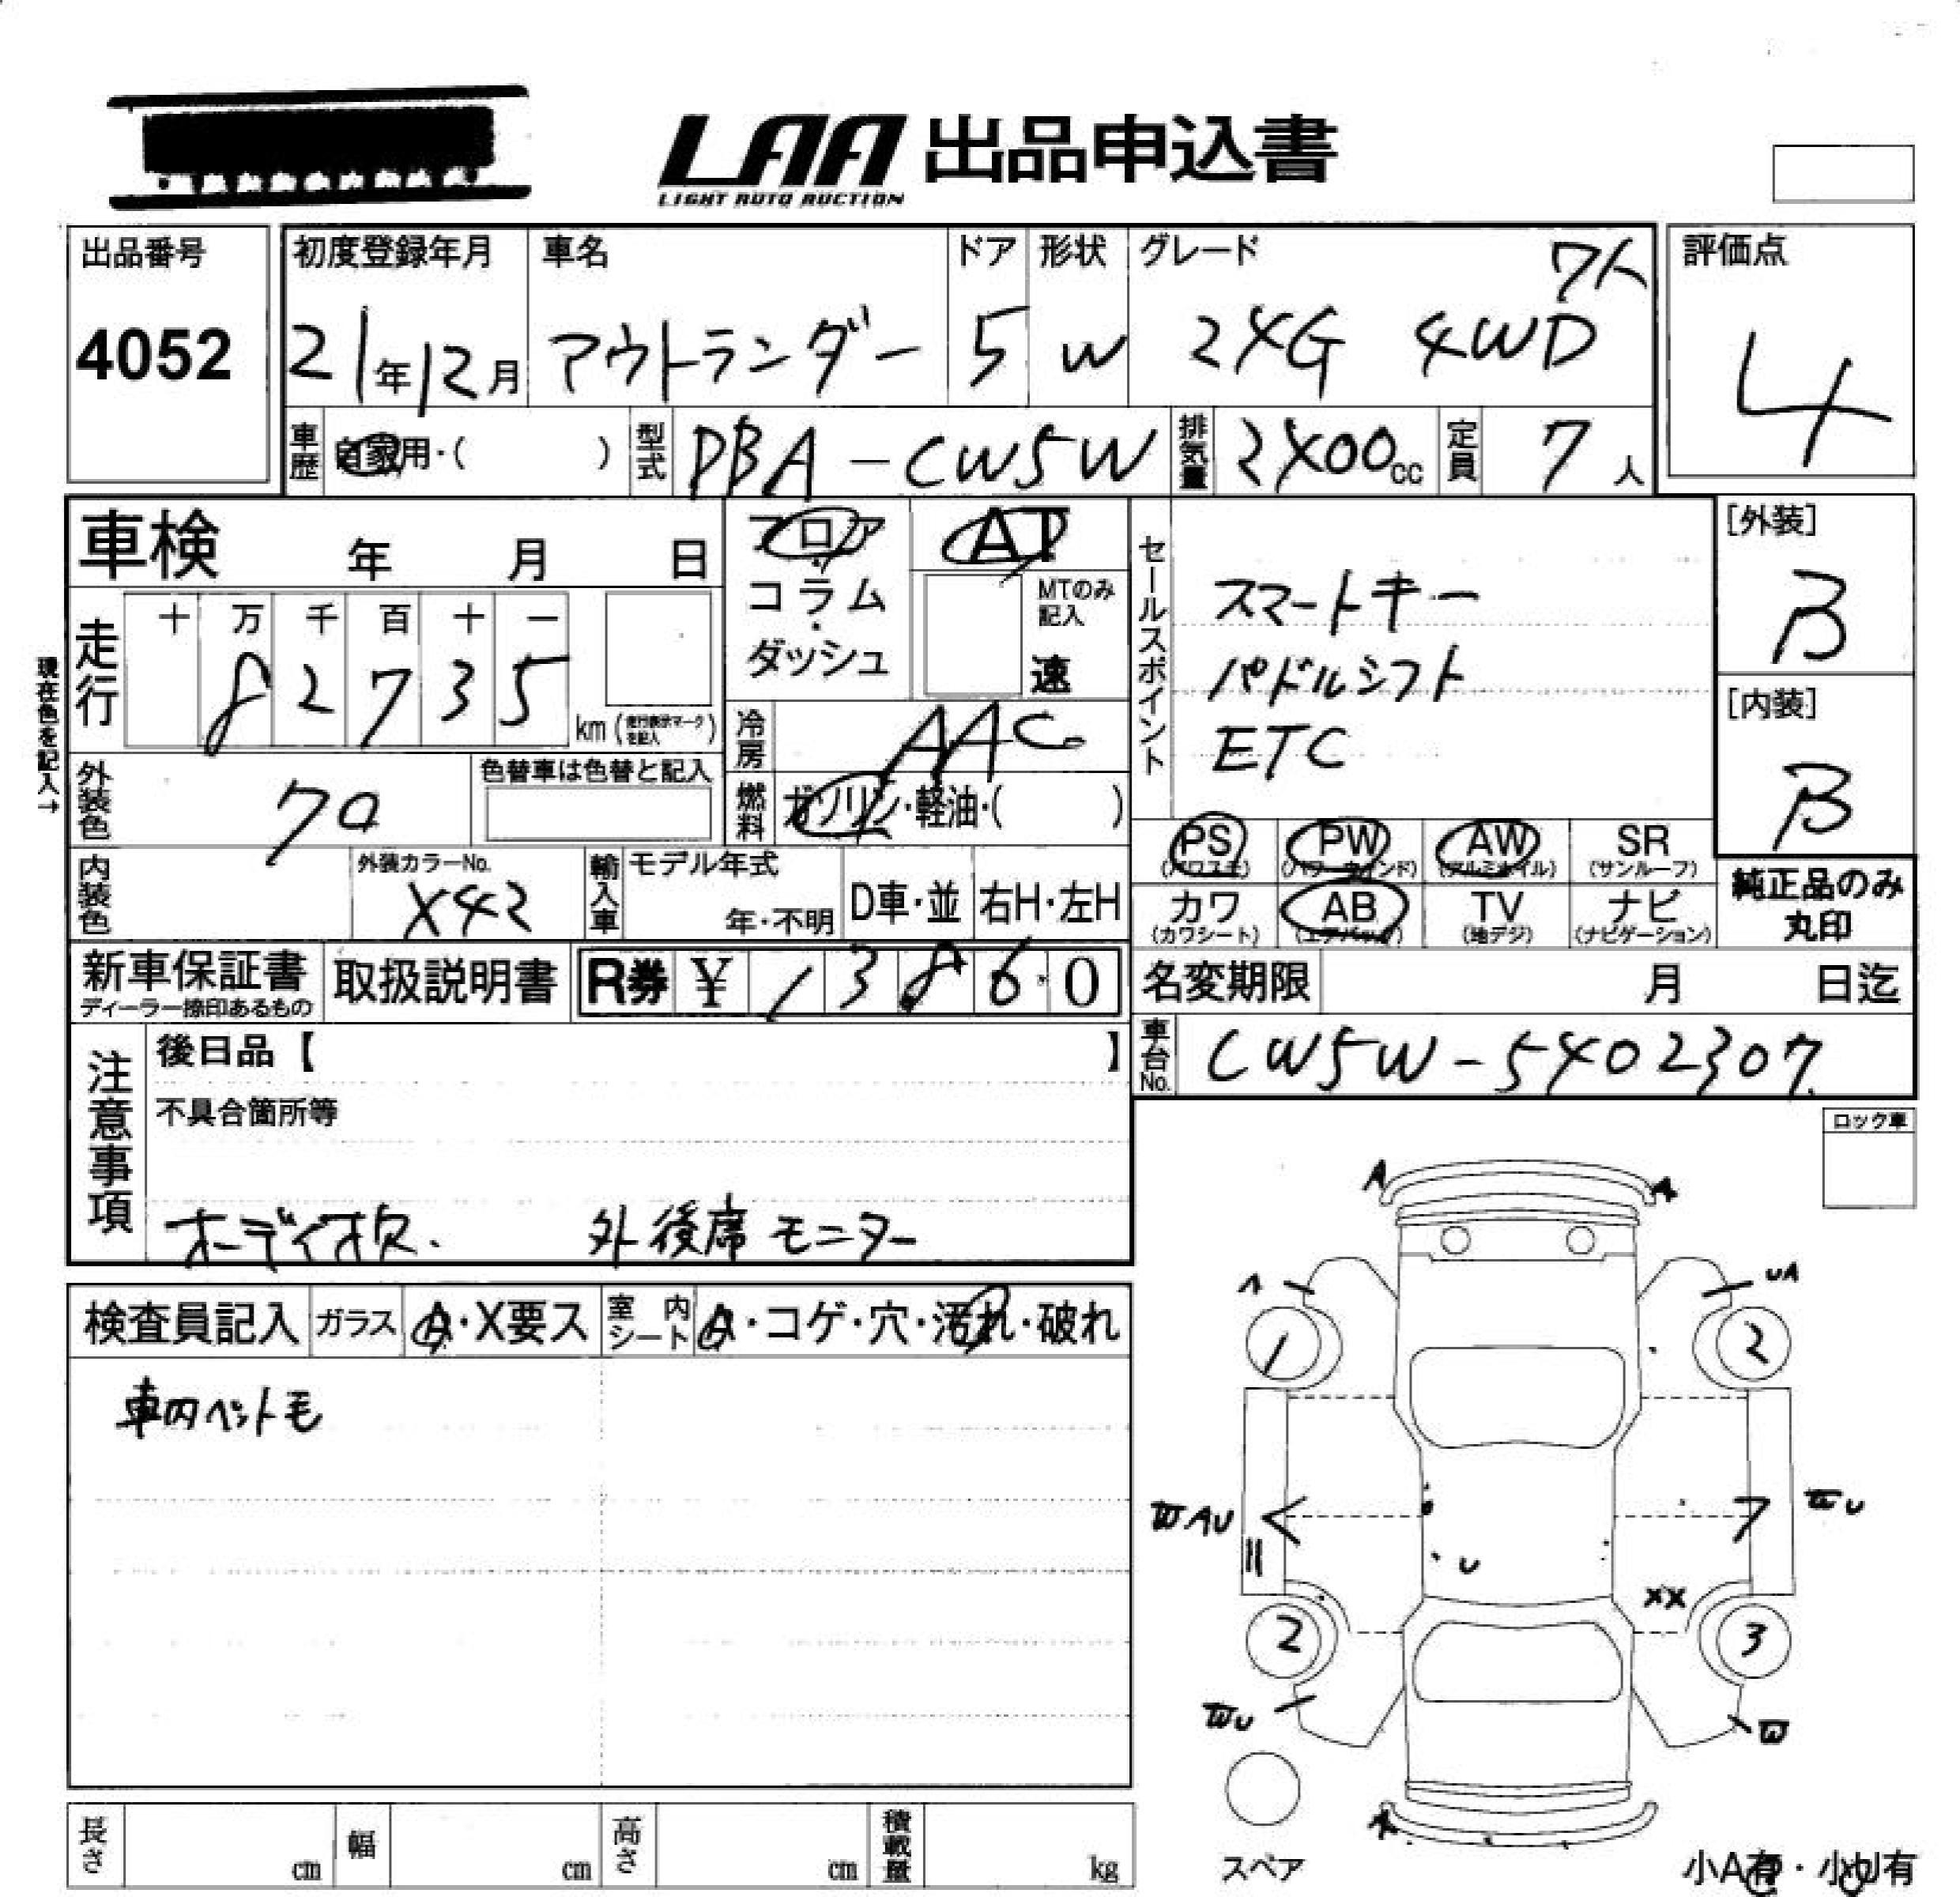 LAA 出品申込書
LIGHT AUTO AUCTION
出品番号
4052
初度登録年月
21年12月
車名
アウトランダー
ドア
5
形状
W
グレード
7人
24G 4WD
評価点
4
車歴
自家用・( )
型式
DBA-CW5W
排気量
2400cc
定員
7人
車検 年 月 日
フロア・コラム・ダッシュ
AT
MTのみ記入
速
セールスポイント
スマートキー
パドルシフト
ETC
[外装]
B
[内装]
B
走行
十 万 千 百 十 一
8 2 7 3 5
km (走行表示マークを記入)
現在色を記入→
冷房
AAC
外装色
クロ
色替車は色替と記入
燃料
ガソリン・軽油・( )
PS
(パワステ)
PW
(パワーウインド)
AW
(アルミホイル)
SR
(サンルーフ)
内装色
外装カラーNo.
X42
輸入車
モデル年式
年・不明
D車・並
右H・左H
カワ
(カワシート)
AB
(エアバッグ)
TV
(地デジ)
ナビ
(ナビゲーション)
純正品のみ
丸印
新車保証書
ディーラー捺印あるもの
取扱説明書
R券 ¥ 1 3 8 6 0
名変期限 月 日迄
車台No.
CW5W-5402307
注意事項
後日品【 】
不具合箇所等
オーディオ欠. 外後席モニター
ロック車
検査員記入
ガラス
A・X要ス
室内シート
A・コゲ・穴・汚れ・破れ
車内ペット毛
A
A
A
UA
1
2
WAU
WU
U
XX
2
3
WU
W
A
スペア
小A有・小U有
長さ cm
幅 cm
高さ cm
積載量 kg